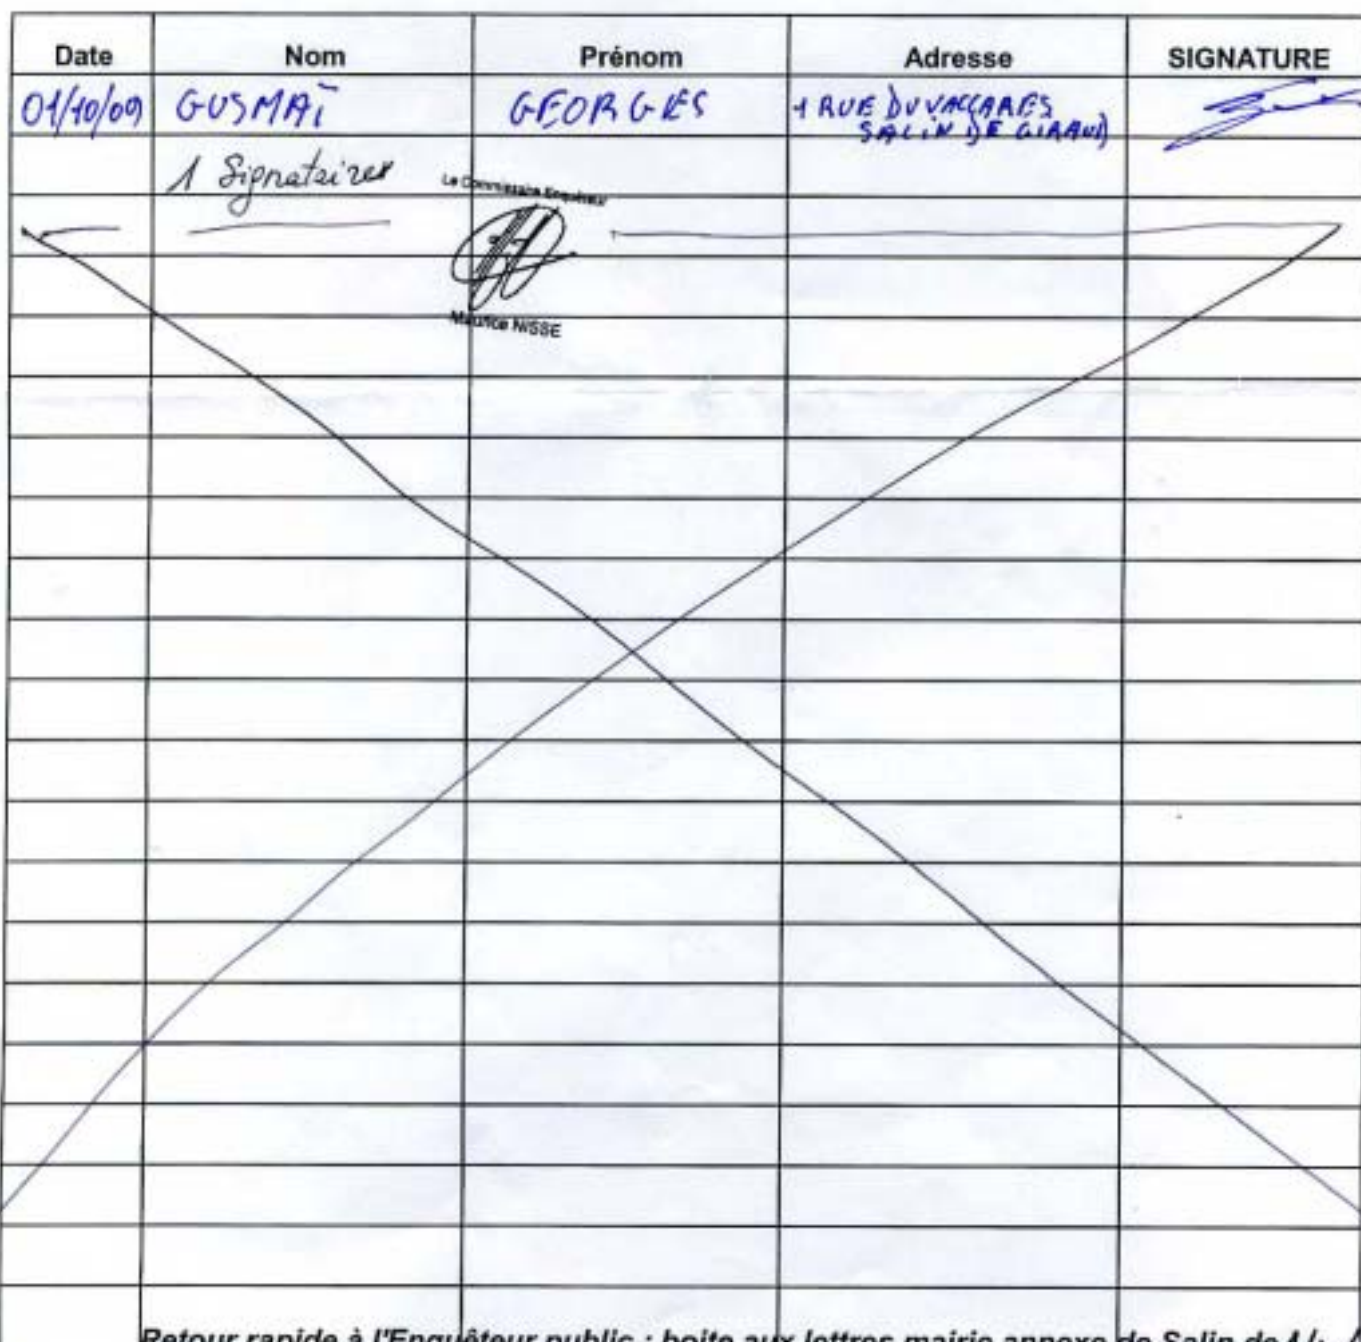 Date Nom Prénom Adresse SIGNATURE
01/10/09 GUSMAÏ GEORGES 1 RUE DU VACCARES
SALIN DE GIRAUD
1 Signataires
Le Commissaire Enquêteur
Maurice NISSE
Retour rapide à l'Enquêteur public : boite aux lettres mairie annexe de Salin de